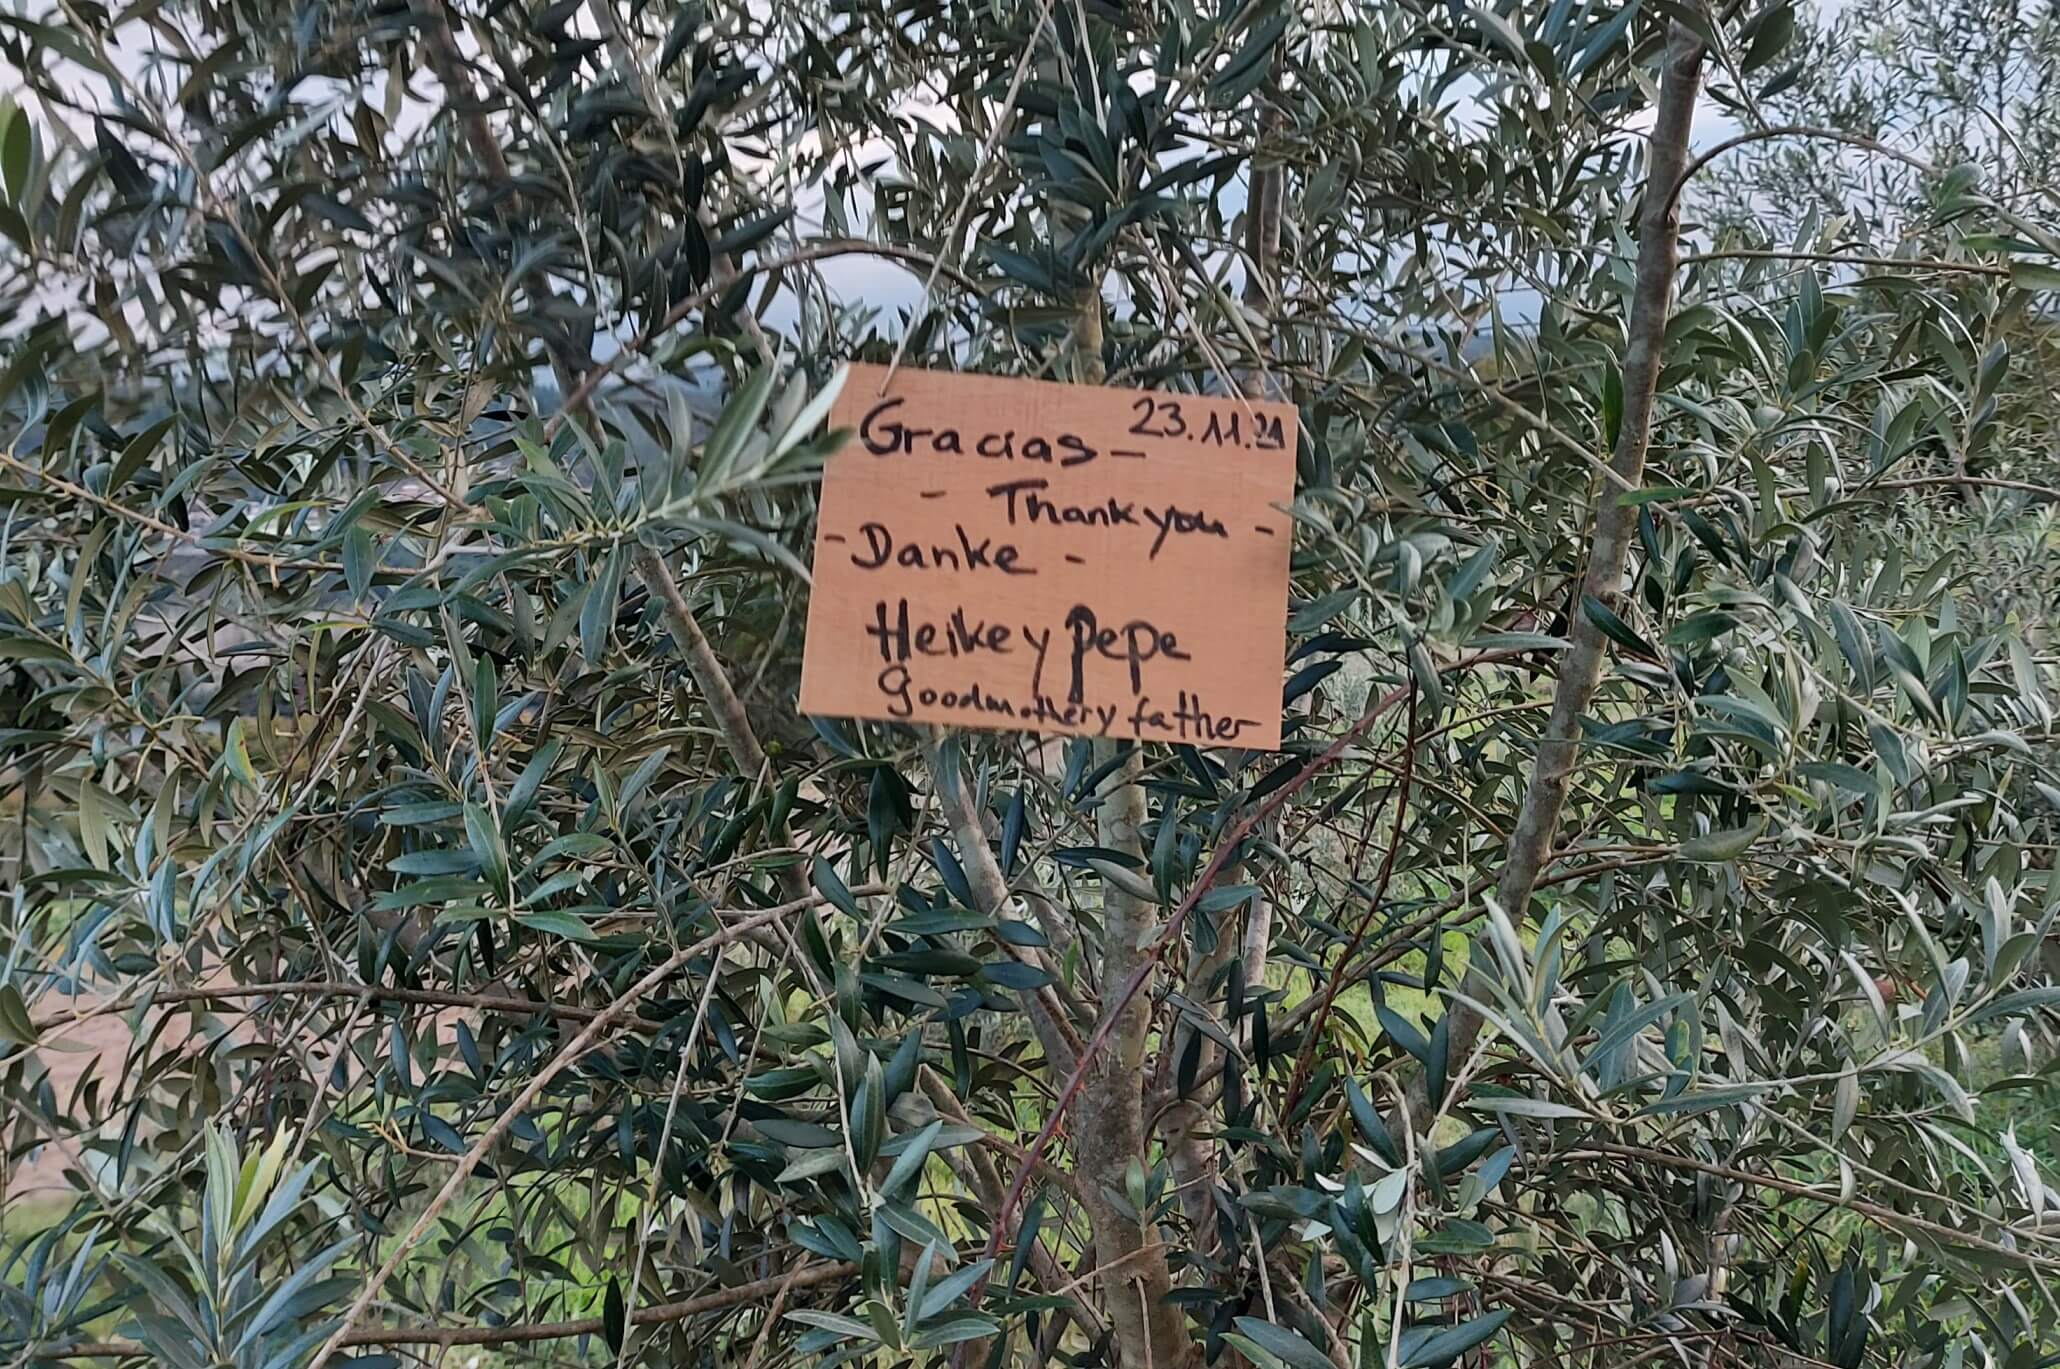 Gracias - 23.11.21
- Thank you -
- Danke -
Heike y Pepe
goodmother y father